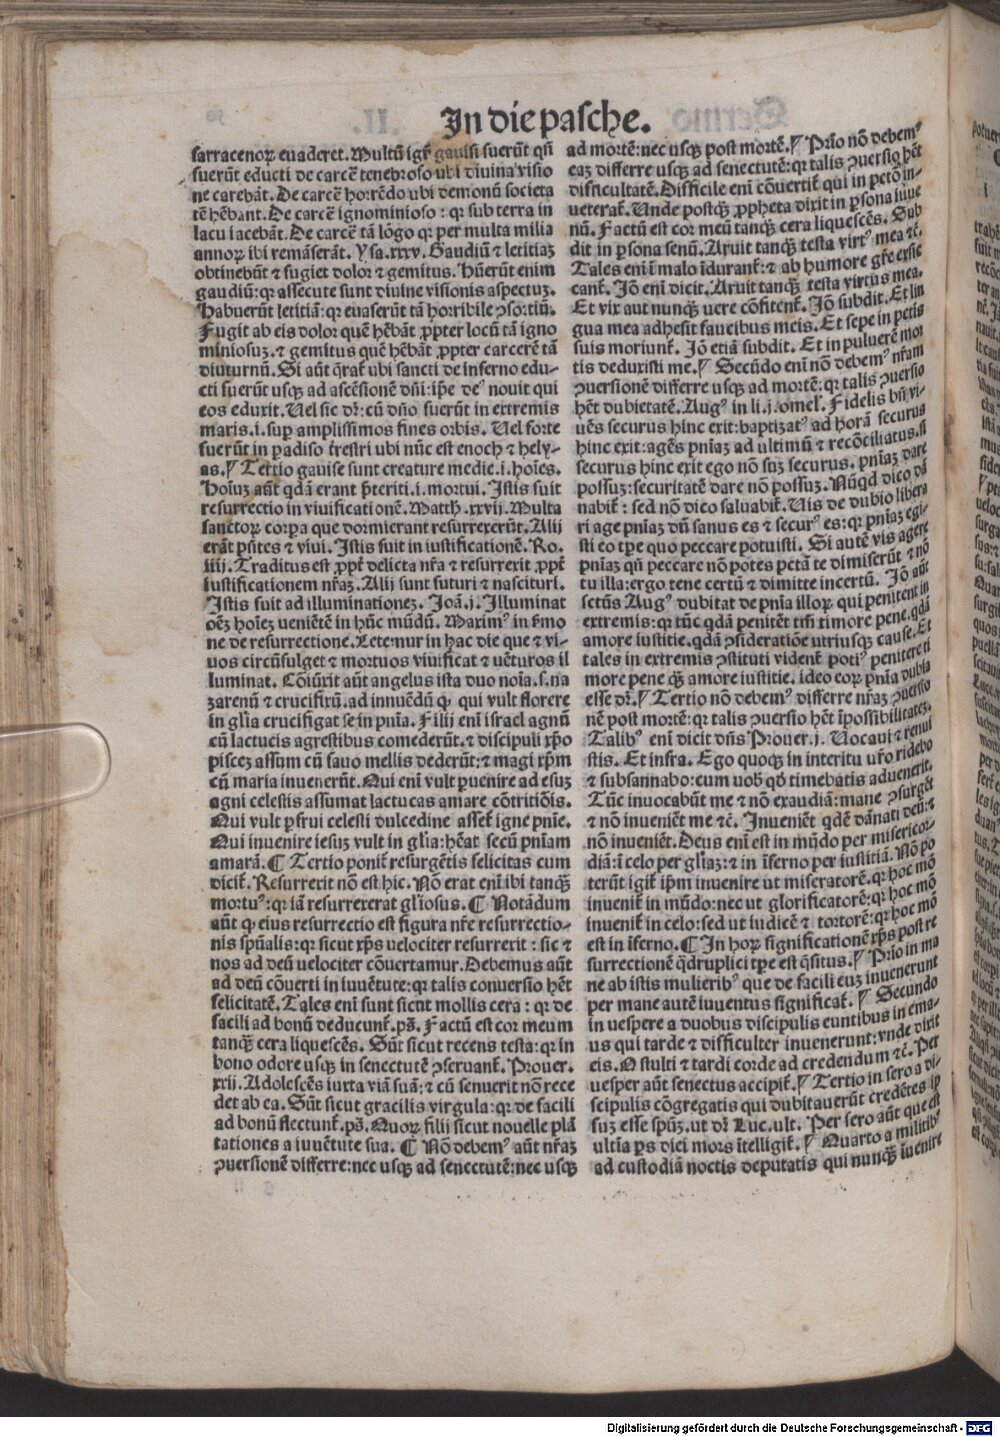 In die pasche.
sarracenoꝝ euaderet. Multũ igĩ gauisi fuerũt qñ
fuerũt educti de carcẽ tenebroso ubi diuina visio
ne carebãt. De carcẽ horrẽdo ubi demonũ societa
tẽ hẽbant. De carcẽ ignominioso : qꝛ sub terra in
lacu iacebãt. De carcẽ tã lõgo qꝛ per multa milia
annoꝝ ibi remãserãt. Ysa. xxxv. Gaudiũ ⁊ letitiaʒ
obtinebũt ⁊ fugiet dolor ⁊ gemitus. Hũerũt enim
gaudiũ: qꝛ assecute sunt diuine visionis aspectuʒ.
Habuerũt letitiã: qꝛ euaserũt tã horribile ꝯsortiũ.
Fugit ab eis dolor quẽ hẽbãt ꝓpter locũ tã igno
miniosuʒ. ⁊ gemitus quẽ hẽbãt ꝓpter carcerẽ tã
diuturnũ. Si aũt q̃rat᷑ ubi sancti de inferno edu-
cti fuerũt usqꝫ ad ascẽsionẽ dñi: ip̃e deꝰ nouit qui
eos eduxit. Uel sic dr̃: cũ dño fuerũt in extremis
maris .i. suꝑ amplissimos fines orbis. Uel forte
fuerũt in ꝑadiso tr̃estri ubi nũc est enoch ⁊ hely-
as. ¶ Tertio gauise sunt creature medie .i. hoĩes.
Hoĩuʒ aũt q̃dã erant p̃teriti .i. mortui. Istis fuit
resurrectio in viuificationẽ. Matth. xxvij. Multa
sanctoꝝ corꝑa que dormierant resurrexerũt. Alij
erãt p̃sẽtes ⁊ viui. Istis fuit in iustificationẽ. Ro.
iiij. Traditus est ꝓpt᷑ delicta nr̃a ⁊ resurrexit ꝓpt᷑
iustificationem nr̃aʒ. Alij sunt futuri ⁊ nascituri.
Istis fuit ad illuminationeʒ. Joã. j. Illuminat
oẽʒ hoĩeʒ veniẽtẽ in hũc mũdũ. Maximꝰ in ẜmo
ne de resurrectione. Letemur in hac die que ⁊ vi-
uos circũfulget ⁊ mortuos viuificat ⁊ vẽturos il
luminat. Cõiũxit aũt angelus ista duo noĩa .s. na
zarenũ ⁊ crucifixũ. ad innuẽdũ ꝙ qui vult florere
in gl̃ia crucifigat se in pñia. Filij enĩ israel agnũ
cũ lactucis agrestibus comederũt. ⁊ discipuli xp̃o
pisceʒ assum cũ fauo mellis dederũt: ⁊ magi xp̃m
cũ maria inuenerũt. Qui enĩ vult ꝑuenire ad esuʒ
agni celestis assumat lactucas amare cõtritiõis.
Qui vult ꝑfrui celesti dulcedine asset᷑ igne pnĩe.
Qui inuenire iesuʒ vult in gl̃ia: hẽat secũ pnĩam
amarã. ¶ Tertio ponit᷑ resurgẽtis felicitas cum
dicit᷑. Resurrexit nõ est hic. Nõ erat enĩ ibi tanqꝫ
mortuꝰ: qꝛ iã resurrexerat gl̃iosus. ¶ Notãdum
aũt ꝙ eius resurrectio est figura nr̃e resurrectio-
nis spũalis: qꝛ sicut xp̃s velociter resurrexit : sic ⁊
nos ad deũ velociter cõuertamur. Debemus aũt
ad deũ cõuerti in iuuẽtute: qꝛ talis conuersio hẽt
felicitatẽ. Tales enĩ sunt sicut mollis cera : qꝛ de
facili ad bonũ deducunt᷑. ps̃. Factũ est cor meum
tanqꝫ cera liquescẽs. Sũt sicut recens testa: qꝛ in
bono odore usqꝫ in senectutẽ ꝯseruant᷑. Prouer.
xxij. Adolescẽs iuxta viã suã: ⁊ cũ senuerit nõ rece
det ab ea. Sũt sicut gracilis virgula: qꝛ de facili
ad bonũ flectunt᷑. ps̃. Quoꝝ filij sicut nouelle plã
tationes a iuuẽtute sua. ¶ Nõ debemꝰ aũt nr̃aʒ
ꝯuersionẽ differre: nec usqꝫ ad senectutẽ: nec usqꝫ
ad mortẽ: nec usqꝫ post mortẽ. ¶ Prĩo nõ debemꝰ
eaʒ differre usqꝫ ad senectutẽ: qꝛ talis ꝯuersio hẽt
difficultatẽ. Difficile enĩ cõuertit᷑ qui in pctõ in-
ueterat᷑. Unde postqꝫ ꝓpheta dixit in ꝑsona iuue
nũ. Factũ est cor meũ tanqꝫ cera liquescẽs. Sub
dit in ꝑsona senũ. Aruit tanqꝫ testa virtꝰ mea ⁊c̃.
Tales enĩ ĩ malo ĩdurant᷑: ⁊ ab humore gr̃e exsic
cant᷑. Jõ enĩ dicit. Aruit tanqꝫ testa virtus mea.
Et vix aut nunqꝫ uere cõfitent᷑. Jõ subdit. Et lin
gua mea adhesit faucibus meis. Et sepe in pctis
suis moriunt᷑. Jõ etiã subdit. Et in puluerẽ mor
tis deduxisti me. ¶ Secũdo enĩ nõ debemꝰ nr̃am
ꝯuersionẽ differre usqꝫ ad mortẽ: qꝛ talis ꝯuersio
hẽt dubietatẽ. Augꝰ in li. j. omel᷑. Fidelis bñ vi-
uẽs securus hinc exit: baptizatꝰ ad horã securus
hinc exit: agẽs pnĩaʒ ad ultimũ ⁊ recõciliatus. si
securus hinc exit ego nõ suʒ securus. pnĩaʒ dare
possuʒ: securitatẽ dare nõ possuʒ. Nũqd dico dã
nabit᷑ : sed nõ dico saluabit᷑. Uis de dubio libera
ri age pnĩaʒ dũ sanus es ⁊ securꝰ es: qꝛ pnĩaʒ egi-
sti eo tꝑe quo peccare potuisti. Si autẽ vis agere
pnĩaʒ qñ peccare nõ potes pctã te dimiserũt ⁊ nõ
tu illa: ergo tene certũ ⁊ dimitte incertũ. Jõ aũt
sctũs Augꝰ dubitat de pnĩa illoꝝ qui penitent in
extremis: qꝛ tũc q̃dã penitẽt trñ timore pene. q̃dã
amore iustitie. q̃dã ꝯsideratiõe utriusqꝫ cause. Et
tales in extremis ꝯstituti vident᷑ potiꝰ penitere ti
more pene qꝫ amore iustitie. ideo eoꝝ pnĩa dubia
esse dr̃. ¶ Tertio nõ debemꝰ differre nr̃aʒ ꝯuersio
nẽ post mortẽ: qꝛ talis ꝯuersio hẽt ĩpossibilitateʒ.
Talibꝰ enĩ dicit dñs Prouer. j. Uocaui ⁊ renui
stis. Et infra. Ego quoqꝫ in interitu vr̃o ridebo
⁊ subsannabo: cum uob̃ qd timebatis aduenerit.
Tũc inuocabũt me ⁊ nõ exaudiã: mane ꝯsurgẽt
⁊ nõ inueniẽt me ⁊c̃. Inueniẽt qdẽ dãnati deũ: ⁊
nõ inueniẽt. Deus enĩ est in mũdo per misericor-
diã: ĩ celo per gl̃iaʒ: ⁊ in ĩferno per iustitiã. Nõ po
terũt igit᷑ ip̃m inuenire ut miseratorẽ. qꝛ hoc mõ
inuenit᷑ in mũdo: nec ut glorificatorẽ: qꝛ hoc mõ
inuenit᷑ in celo: sed ut iudicẽ ⁊ tortorẽ: qꝛ hoc mõ
est in ĩferno. ¶ In hoꝝ significationẽ xp̃s post re
surrectionẽ q̃druplici tꝑe est q̃situs. ¶ Prĩo in ma
ne ab istis mulieribꝰ que de facili euʒ inuenerunt
per mane autẽ iuuentus significat᷑. ¶ Secundo
in uespere a duobus discipulis euntibus in ema-
us qui tarde ⁊ difficulter inuenerunt: vnde dixit
eis. O stulti ⁊ tardi corde ad credendum ⁊c̃. Per
uesper aũt senectus accipit᷑. ¶ Tertio in sero a di-
scipulis cõgregatis qui dubitauerũt credẽtes ip
suʒ esse spũʒ. ut dr̃ Luc. ult. Per sero aũt que est
ultĩa ꝑs diei mors ĩtelligit᷑. ¶ Quarto a militibꝰ
ad custodiã noctis deputatis qui nunqꝫ ĩuenire
Digitalisierung gefördert durch die Deutsche Forschungsgemeinschaft - DFG